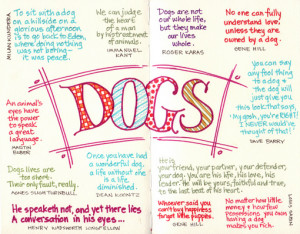 To sit with a dog
on a hillside on a
glorious afternoon
is to go back to Eden,
where doing nothing
was not boring –
it was peace.
MILAN KUNDERA
We can judge
the heart
of a man
by his treatment
of animals.
IMMANUEL
KANT
Dogs are not
our whole life,
but they make
our lives
whole.
ROGER KARAS
No one can fully
understand love,
unless they are
owned by a dog.
GENE HILL
An animal's
eyes have
the power
to speak
a great
language.
MARTIN
BUBER
DOGS
you can say
any fool thing
to a dog &
the dog
will just
give you
this look that says,
'my gosh, you're RIGHT!
I NEVER would've
thought of that!'
DAVE BARRY
Dogs lives are
too short.
Their only fault, really.
AGNES SLIGH TURNBULL
Once you have had
a wonderful dog,
a life without one
is a life
diminished.
DEAN KOONTZ
He is
your friend, your partner, your defender,
your dog. you are his life, his love, his
leader. He will be yours, faithful and true,
to the last beat of his heart.
He speaketh not, and yet there lies
A conversation in his eyes...
HENRY WADSWORTH LONGFELLOW
Whoever said you
can't buy happiness
forgot little puppies.
GENE HILL
No matter how little
money & how few
possessions you own,
having a dog
makes you rich.